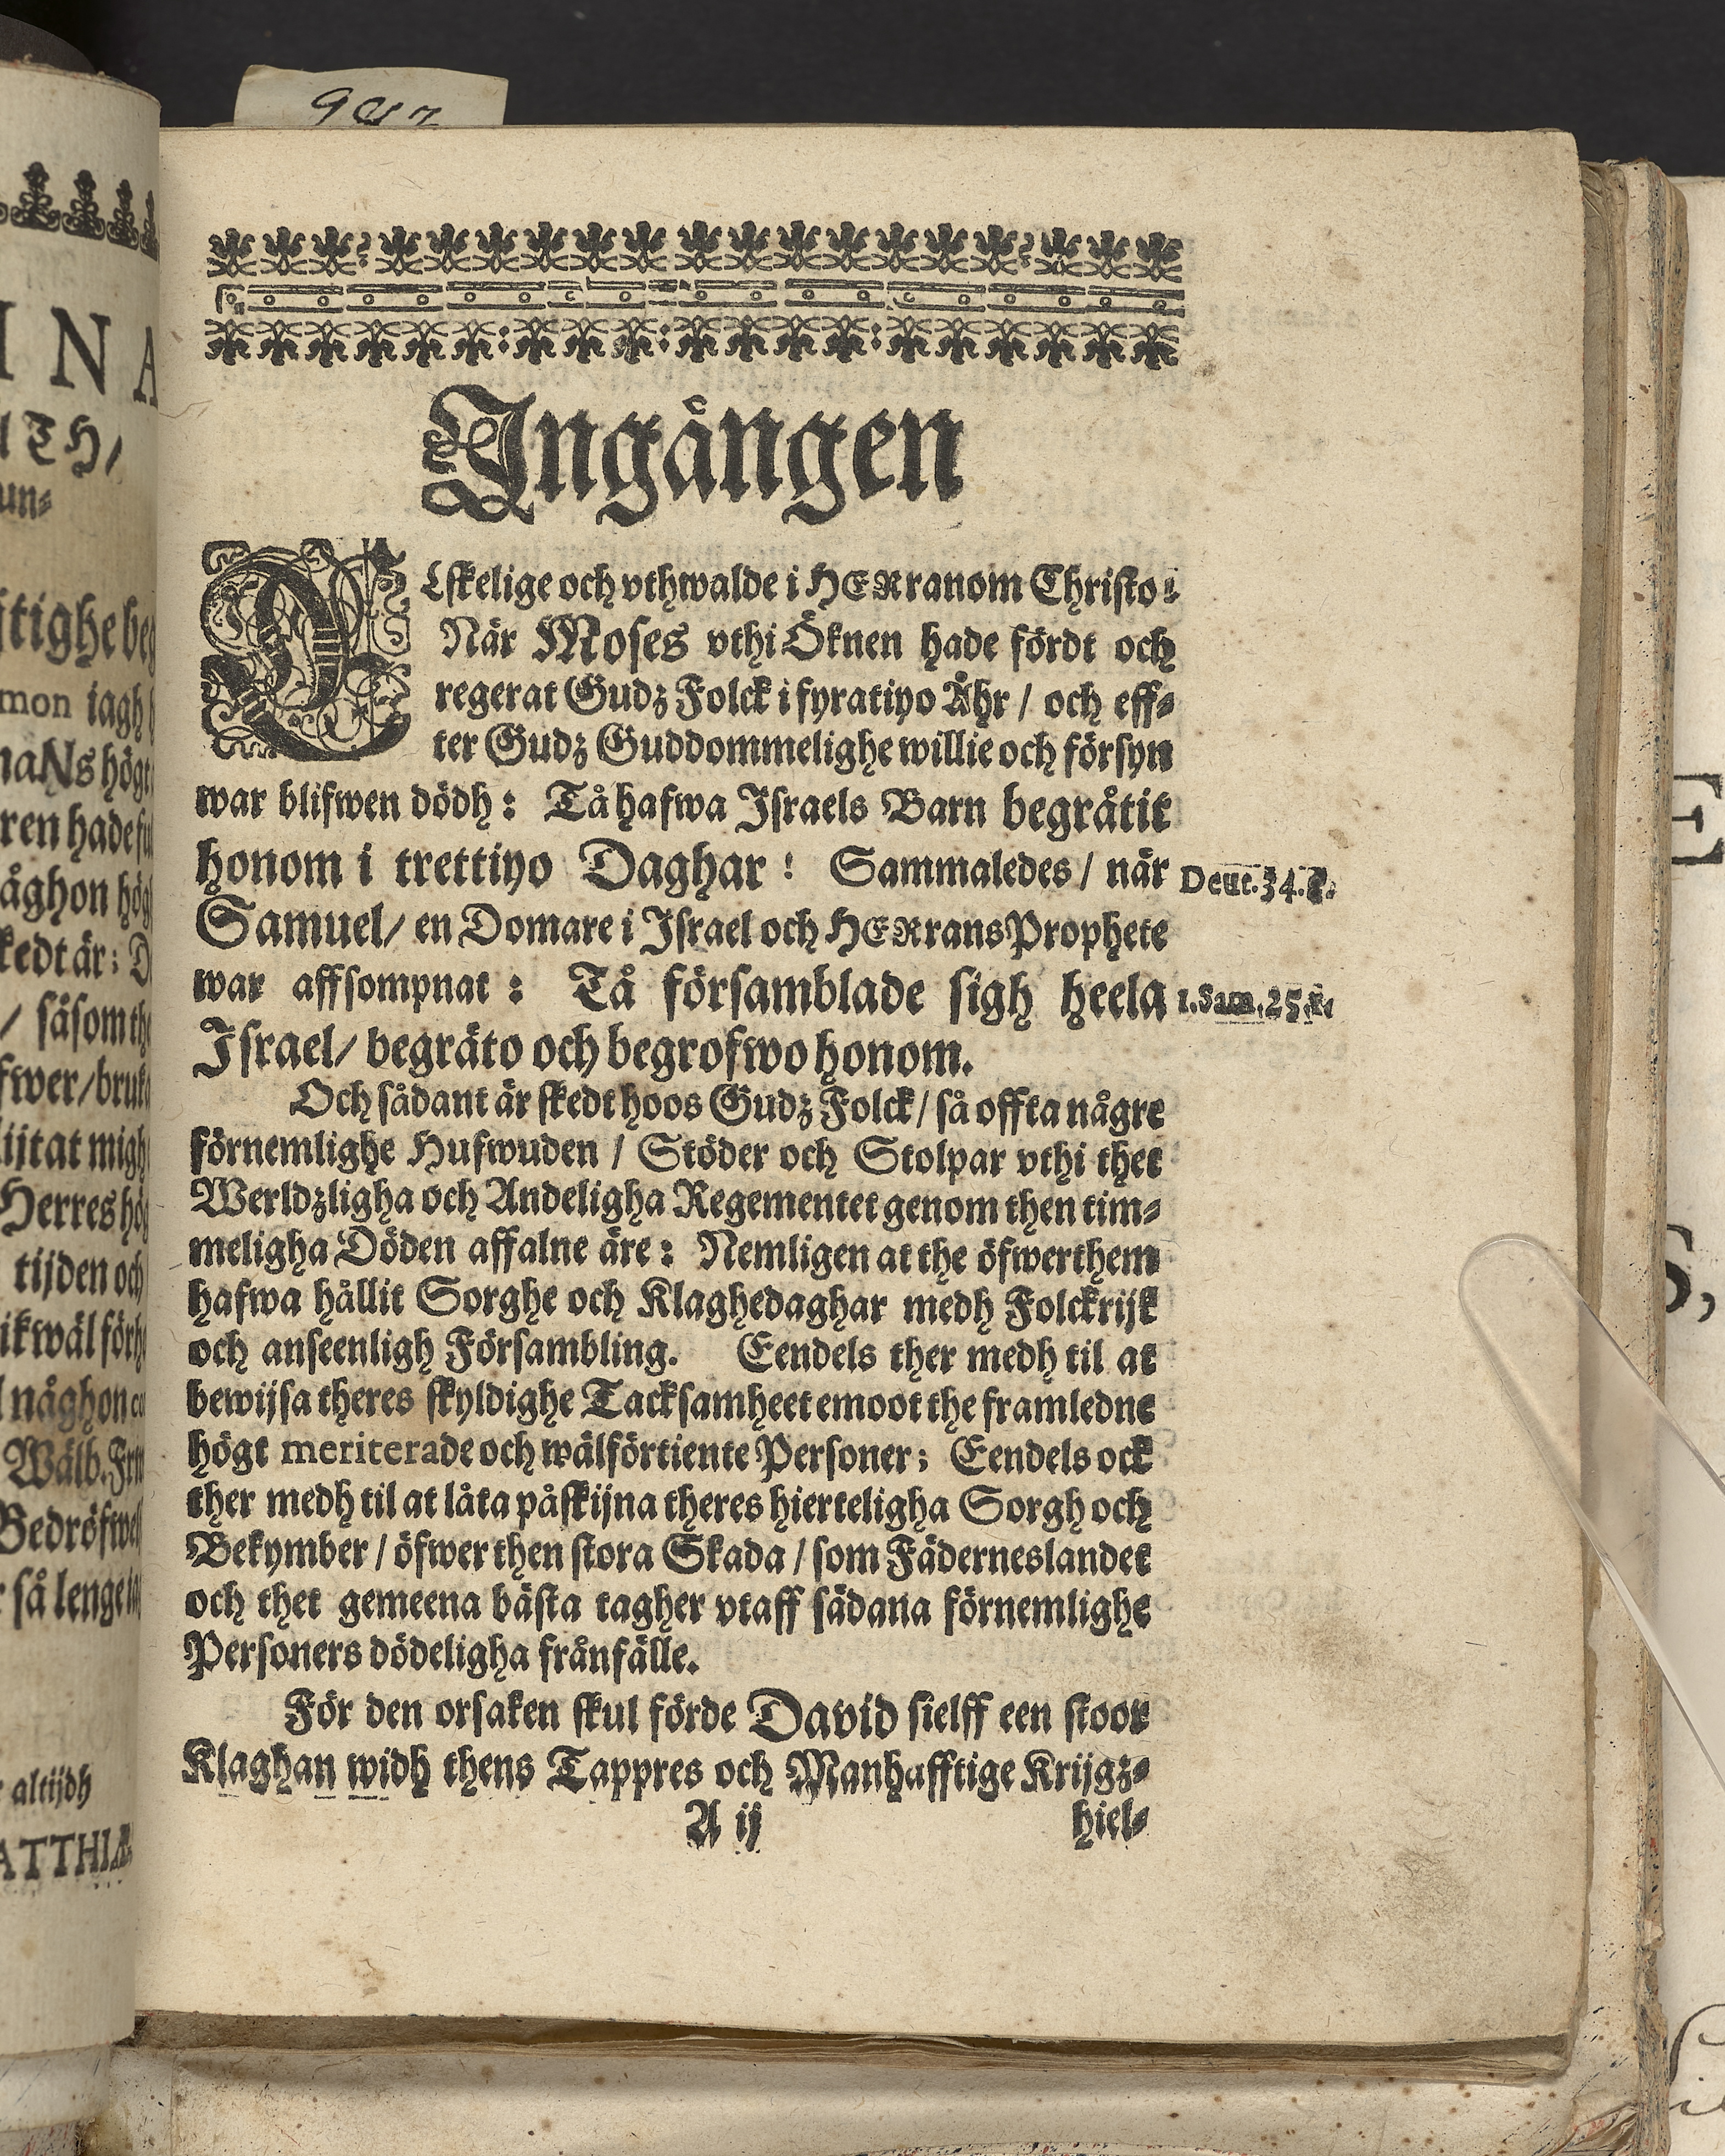 Ingången
ELskelige och vthwalde i HERranom Christo:
När Moses vthi Öknen hade fördt och
regerat Gudz Folck i fyratiyo Åhr / och eff-
ter Gudz Guddommelighe willie och försyn
war blifwen dödh: Tå hafwa Israels Barn begråtit
honom i trettiyo Daghar! Sammaledes / när
Deut. 34.
Samuel / en Domare i Israel och HERrans Prophete
war affsompnat: Tå församblade sigh heela
1. Sam. 25.
Israel / begräto och begrofwo honom.
Och sådant är skedt hoos Gudz Folck / så offta någre
förnemlighe Hufwuden / Stöder och Stolpar vthi thet
Werldzligha och Andeligha Regementet genom then tim-
meligha Döden affalne äre: Nemligen at the öfwer them
hafwa hållit Sorghe och Klaghedaghar medh Folckrijk
och anseenligh Försambling. Eendels ther medh til at
bewijsa theres skyldighe Tacksamheet emoot the framledne
högt meriterade och wälförtiente Personer; Eendels ock
ther medh til at låta påskijna theres hierteligha Sorgh och
Bekymber / öfwer then stora Skada / som Fäderneslandet
och thet gemeena bästa tagher vtaff sådana förnemlighe
Personers dödeligha frånfälle.
För den orsaken skul förde David sielff een stoor
Klaghan widh thens Tappres och Manhafftige Krijgz-
A ij
hiel-